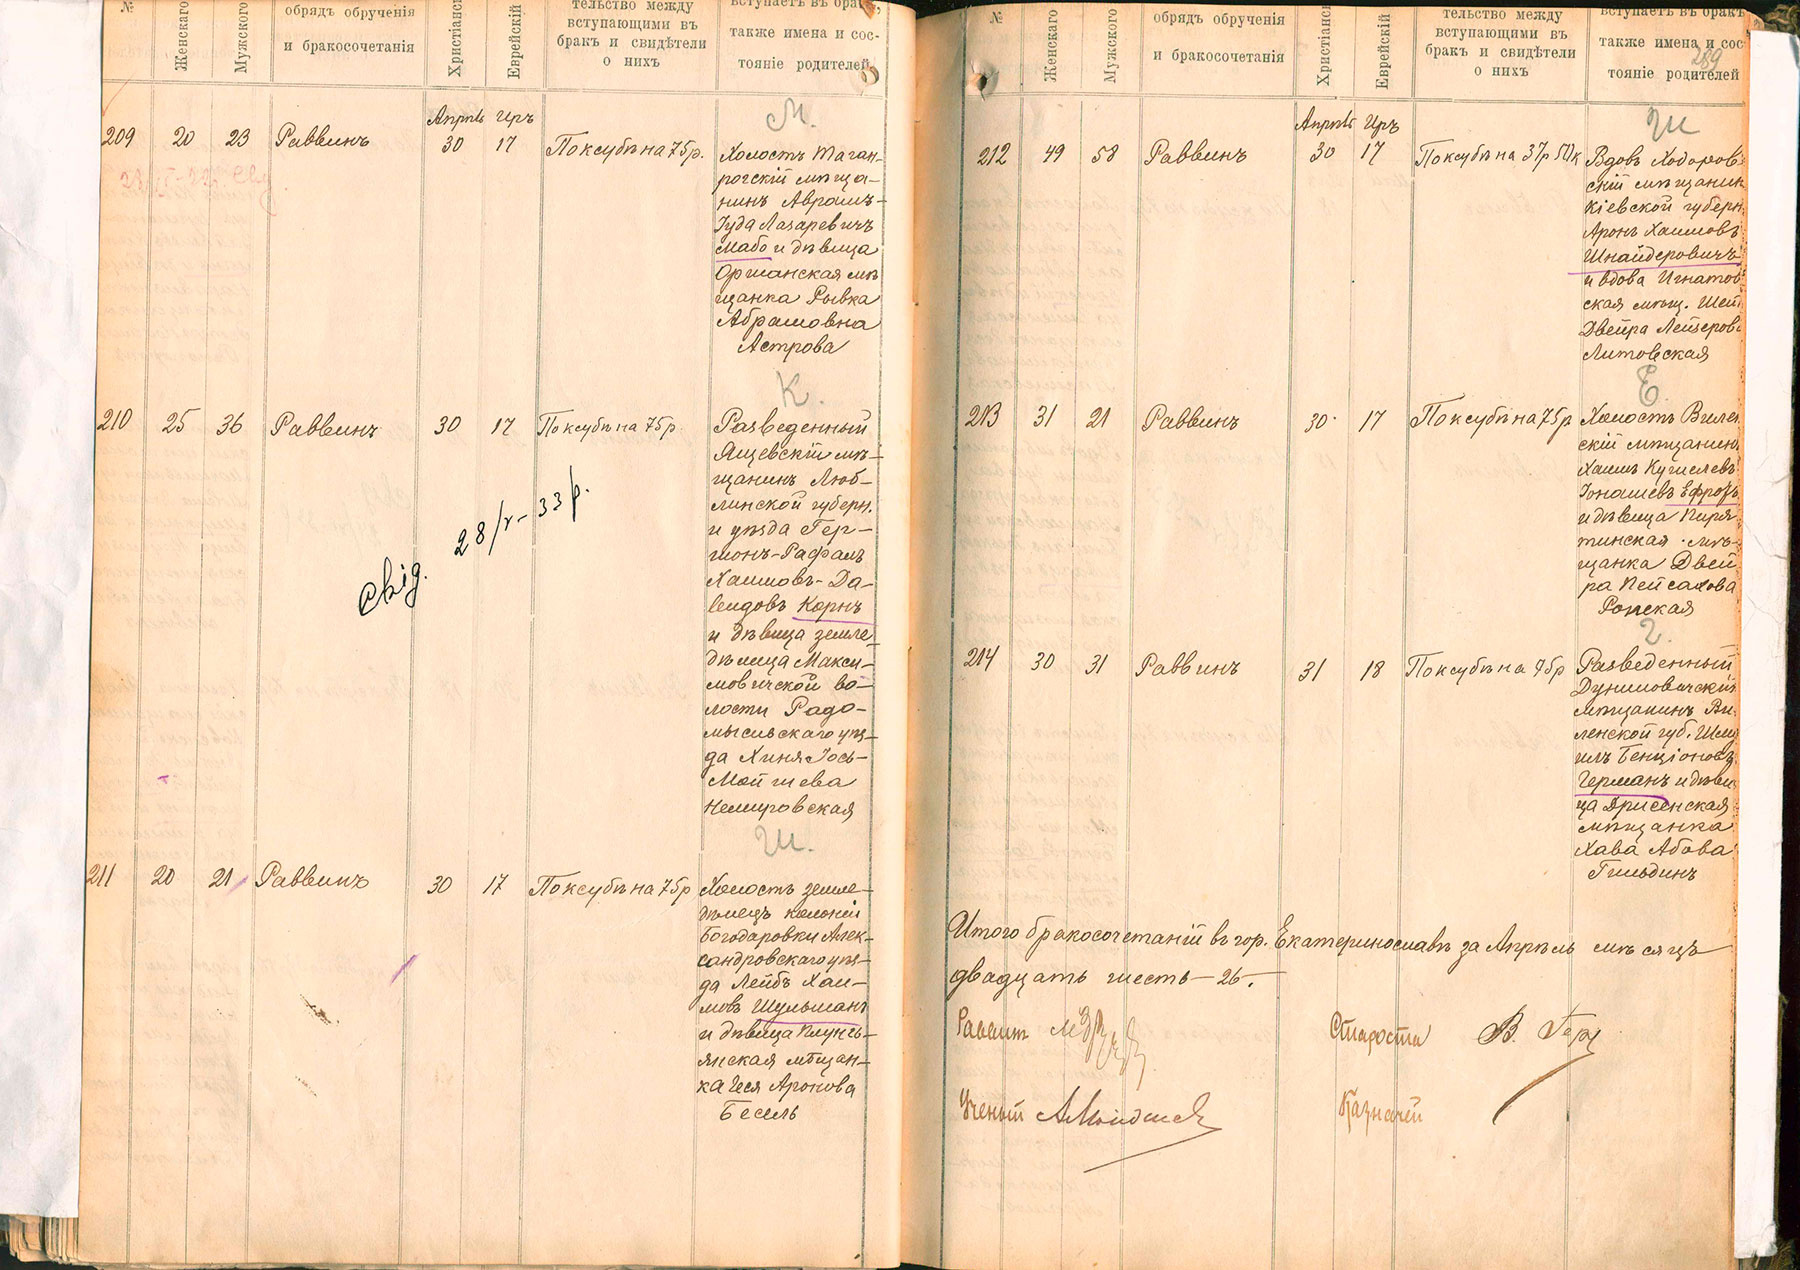 №
Женскаго
Мужского
обрядъ обрученія
и бракосочетанія
Христіанс
Еврейскій
тельство между
вступающими въ
бракъ и свидѣтели
о нихъ
вступаетъ въ бракъ,
также имена и сос-
тояніе родителей
М.
Апрѣль Іиръ
209 20 23 Раввинъ 30 17 По ксубѣ на 75 р.
Холостъ Таган-
рогскій мѣща-
нинъ Авраамъ-
Іуда Лазаревичъ
Мабо и дѣвица
Оршанская мѣ
щанка Рывка
Абрамовна
Астрова
К.
210 25 36 Раввинъ 30 17 По ксубѣ на 75 р.
Разведенный
мѣ-
щанинъ Люб-
линской губерн.
и уѣзда Гер-
шонъ-Рафаилъ
Хаимовъ-Да-
видовъ Корнъ
и дѣвица земле-
дѣлица Макси-
мовичской во-
лости Радо-
мысльскаго уѣз-
да Хиня Іось-
Мойшева
Немировская
свід. 28/V-33 р.
Ш.
211 20 21 Раввинъ 30 17 По ксубѣ на 75 р
Холостъ земле-
дѣлецъ колоніи
Богодаровки Алек-
сандровскаго уѣз-
да Лейбъ Хаи-
мовъ Шульманъ
и дѣвица
янская мѣщан-
ка Геся Аронова
Бесель
№
Женскаго
Мужского
обрядъ обрученія
и бракосочетанія
Христіанс
Еврейскій
тельство между
вступающими въ
бракъ и свидѣтели
о нихъ
вступаетъ въ бракъ
также имена и сос
тояніе родителей
289
Ш
Апрѣль Іиръ
212 49 58 Раввинъ 30 17 По ксубѣ на 37 р 50 к
Вдовъ Ходоров-
скій мѣщанин
Кіевской губерн.
Аронъ Хаимовъ
Шнайдеровичъ
и вдова Игнатов
ская мѣщ. Шей
Двейра Лейзеров
Литовская
Е.
213 31 21 Раввинъ 30 17 По ксубѣ на 75 р
Холостъ Вилен
скій мѣщанин
Хаимъ
Іонашевъ Ефросъ
и дѣвица Пиря-
тинская мѣ-
щанка Двей
ра Пейсахова
Ронская
Г.
214 30 31 Раввинъ 31 18 По ксубѣ на 75 р
Разведенный
Дуниловичскій
мѣщанинъ Ви-
ленской губ. Шму
илъ Бенціоновъ
Германъ и дѣви
ца Дрисенская
мѣщанка
Хава Абова
Гильдинъ
Итого бракосочетаній въ гор. Екатеринославѣ за Апрѣль мѣсяцъ
двадцать шесть - 26.
Раввинъ
Староста В.
Ученый
Казначей